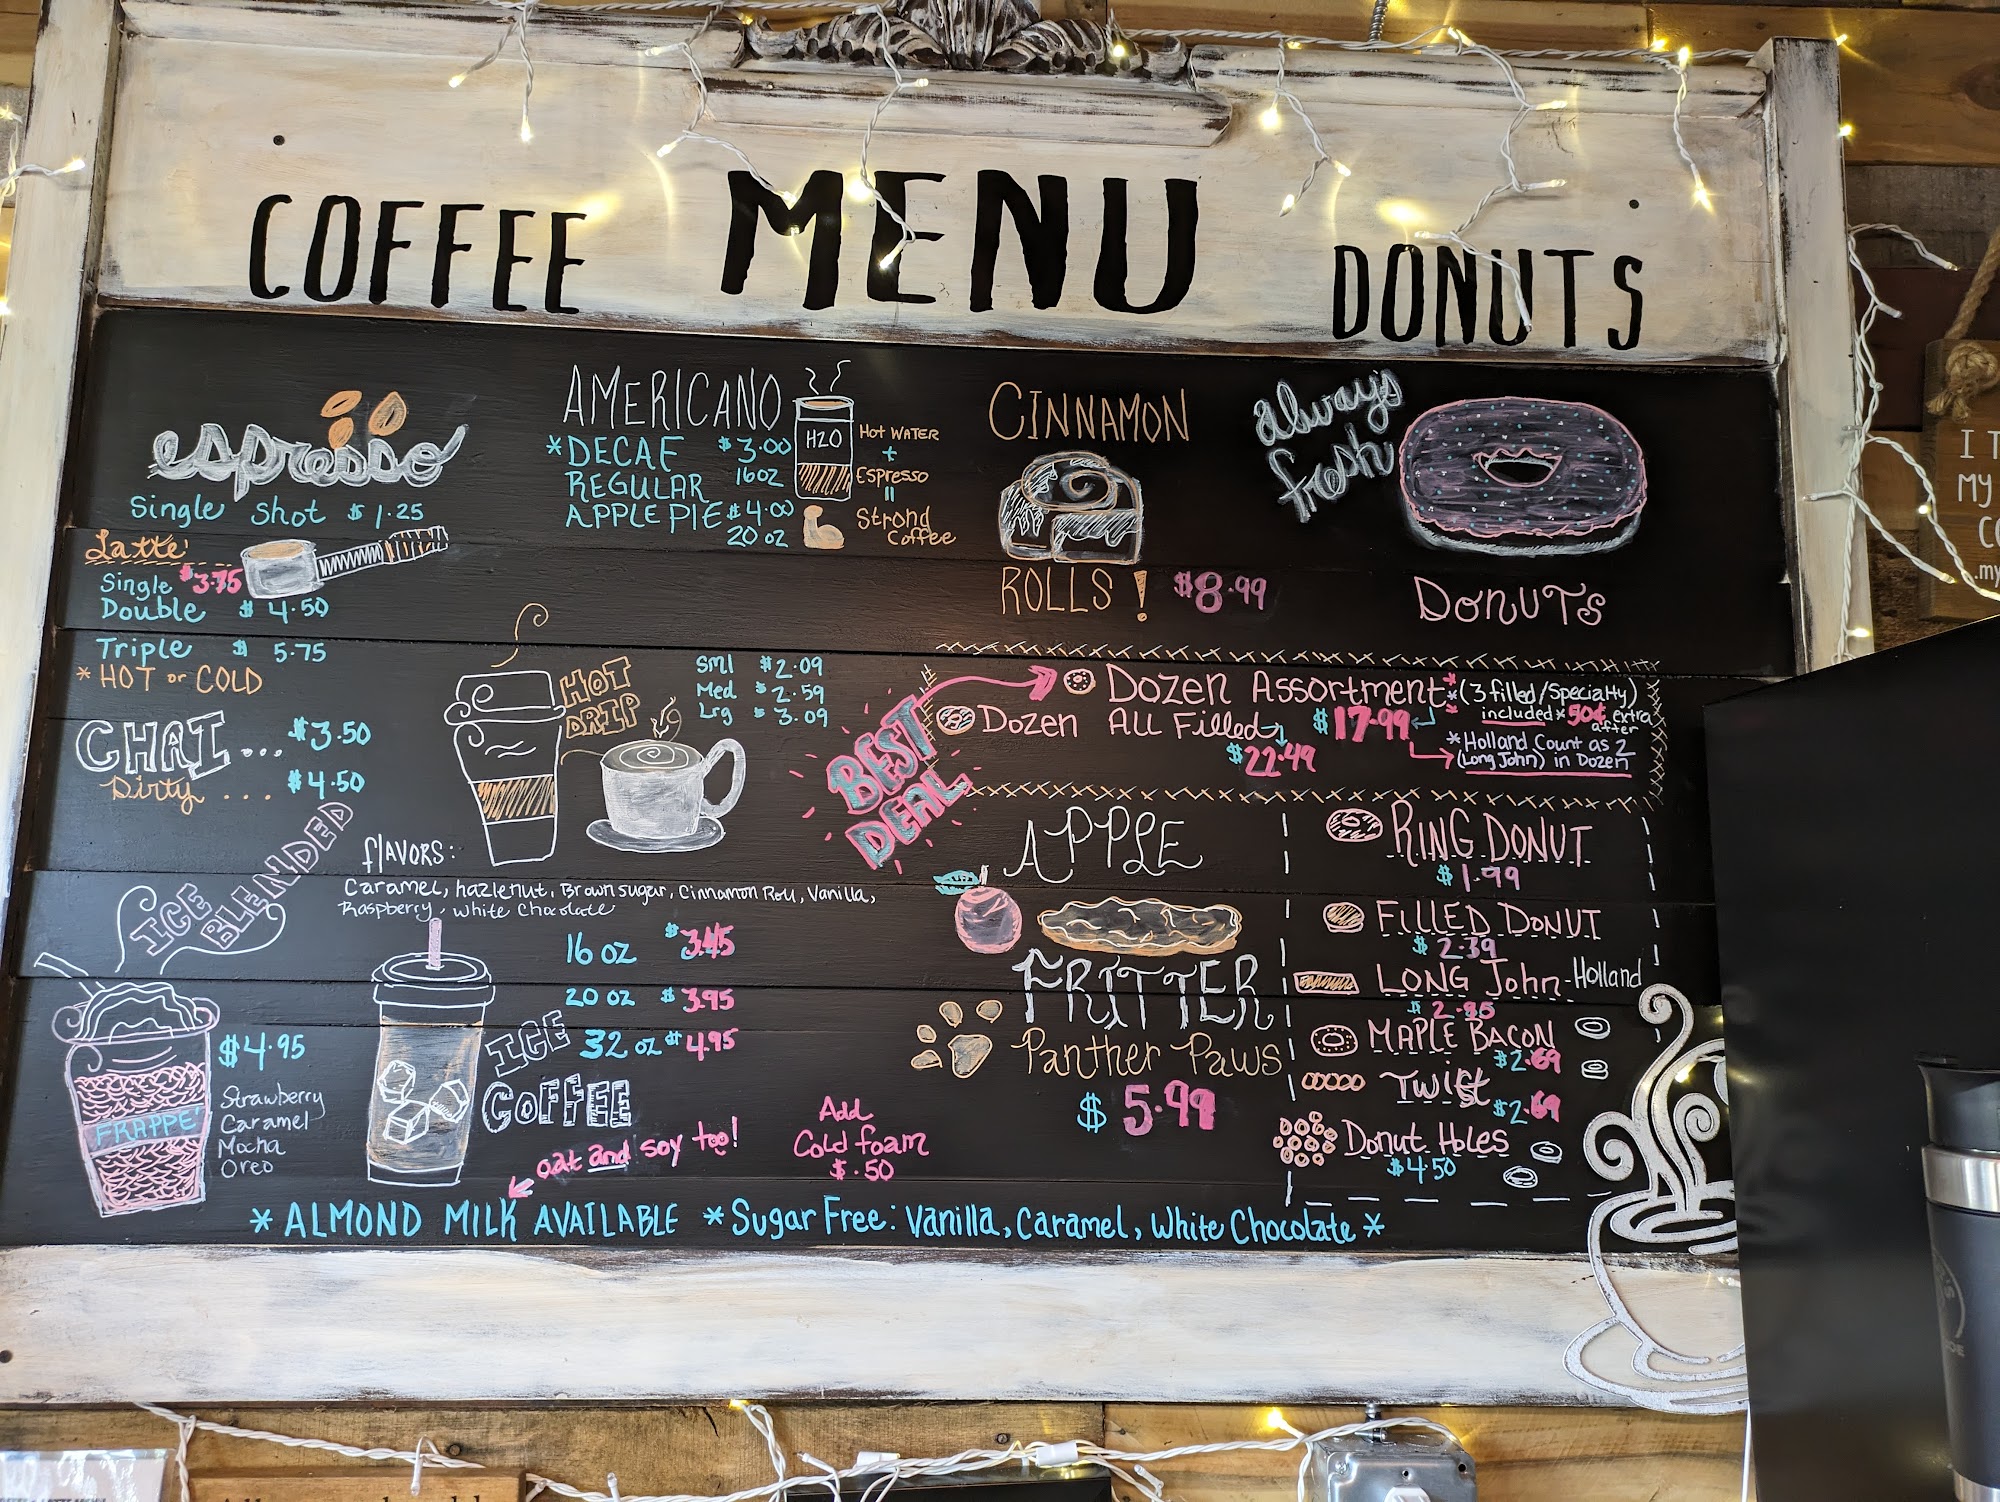 COFFEE MENU DONUTS
espresso
Single Shot $1.25
Latte'
Single $3.75
Double $4.50
Triple $5.75
*HOT or COLD
CHAI... $3.50
Dirty.... $4.50
AMERICANO
*DECAF $3.00
REGULAR 16oz
APPLE PIE $4.00
20 oz
H2O
Hot WATER
+
Espresso
=
Strong
Coffee
HOT
DRIP
Sml $2.09
Med $2.59
Lrg $3.09
flavors:
Caramel, hazlenut, Brown sugar, Cinnamon Roll, Vanilla,
Raspberry, White Chocolate
ICE
BLENDED
FRAPPE'
$4.95
Strawberry
Caramel
Mocha
Oreo
16 oz $3.45
20 oz $3.95
32 oz $4.95
ICE
COFFEE
oat and soy too!
Add
Cold foam
$.50
* ALMOND MILK AVAILABLE * Sugar Free: Vanilla, Caramel, White Chocolate *
CINNAMON
ROLLS! $8.99
always
fresh
DONUTS
BEST
DEAL
Dozen Assortment * (3 filled/Specialty)
$17.99 included * 50¢ extra
after
Dozen All Filled
$22.49
*Holland Count as 2
(Long John) in Dozen
APPLE
FRITTER
Panther Paws
$5.99
RING DONUT
$1.99
FILLED DONUT
$2.39
LONG John - Holland
MAPLE BACON
$2.69
Twist
$2.69
Donut Holes
$4.50
I
MY